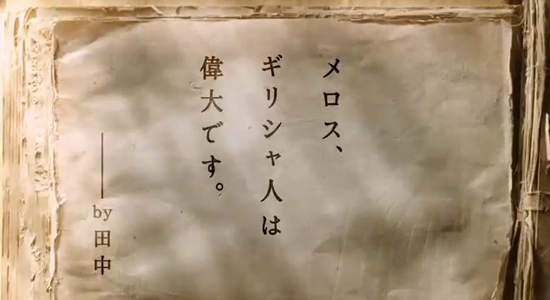 メロス、
ギリシャ人は
偉大です。
——by田中